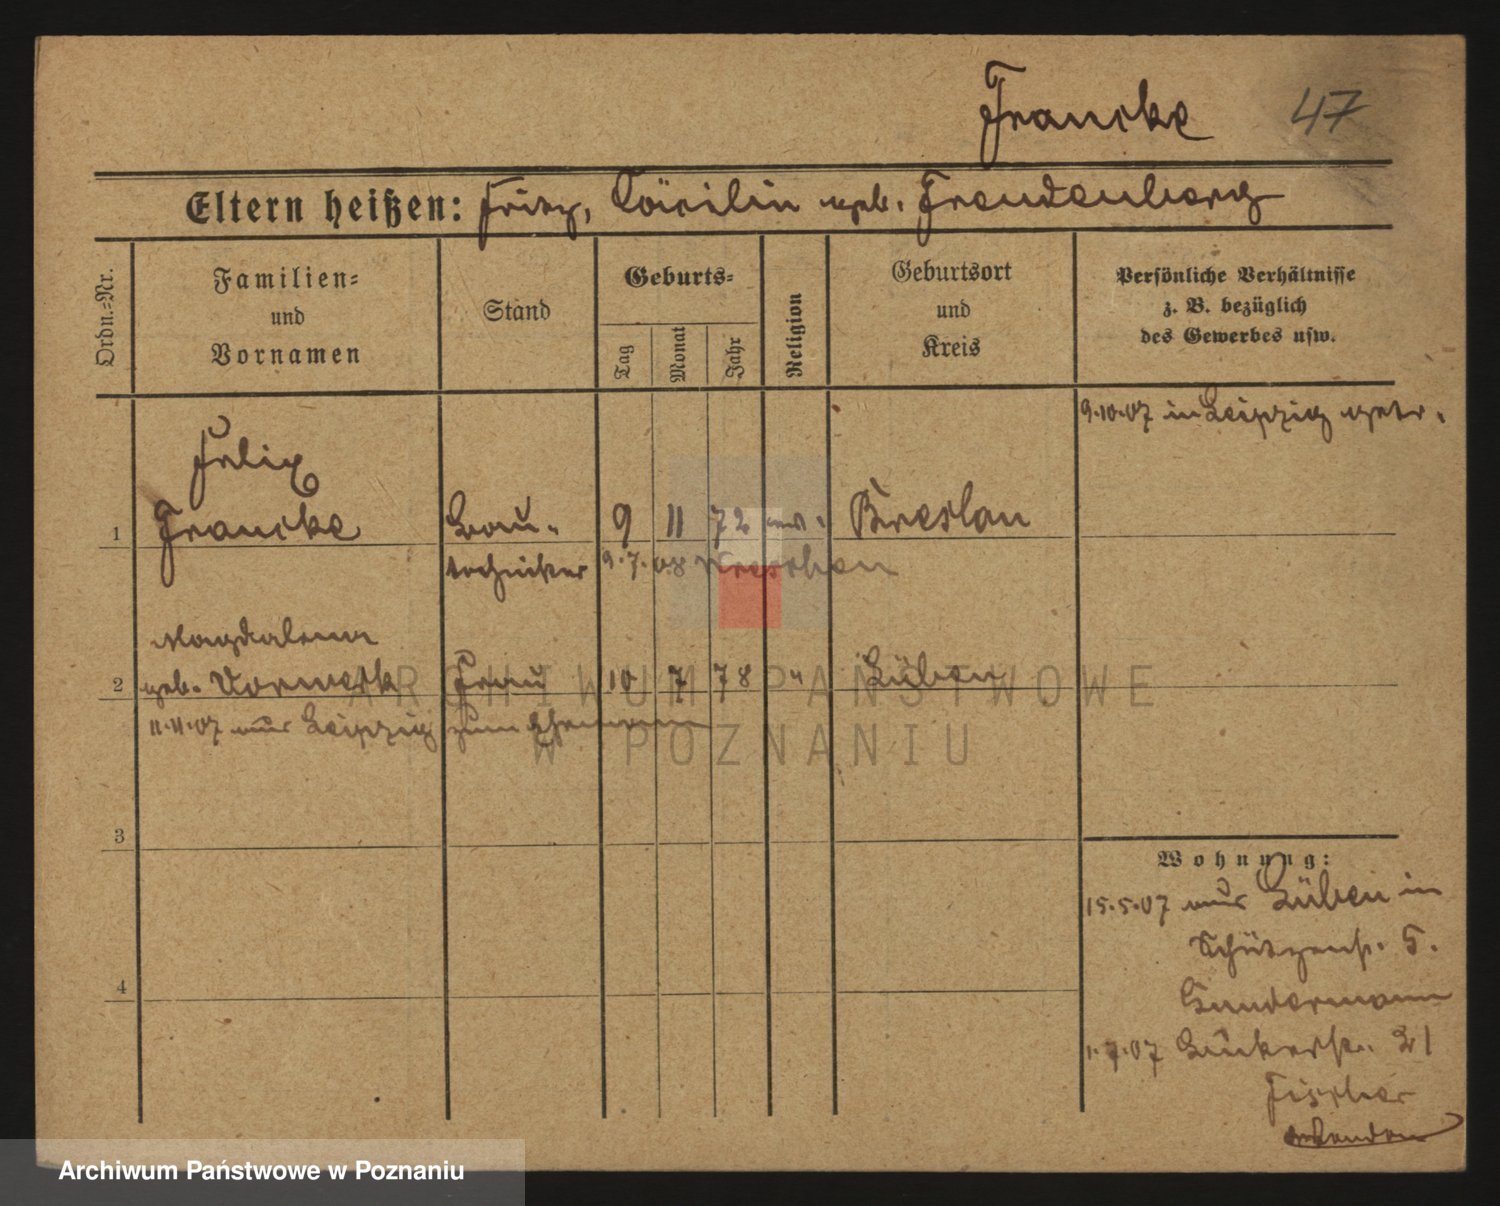 Francke 47
Eltern heißen: Fritz, Cäcilin geb. Freudenberg
Ordn.-Nr.
Familien-
und
Vornamen
Stand
Geburts-
Tag
Monat
Jahr
Religion
Geburtsort
und
Kreis
Persönliche Verhältnisse
z. B. bezüglich
des Gewerbes usw.
9.10.07 in Leipzig getr.
Felix
1 Francke Bau- 9 11 72 ev. Breslau
techniker 9.7.08 Wreschen
Magdalena
2 geb. Vorwerk Frau 10 7 78 " Lüben
11.11.07 aus Leipzig zum Ehemann
3
4
Wohnung:
15.5.07 aus Lüben in
Schützenstr. 5.
1.7.07 21
Fischer
ARCHIWUM PAŃSTWOWE
W POZNANIU
Archiwum Państwowe w Poznaniu